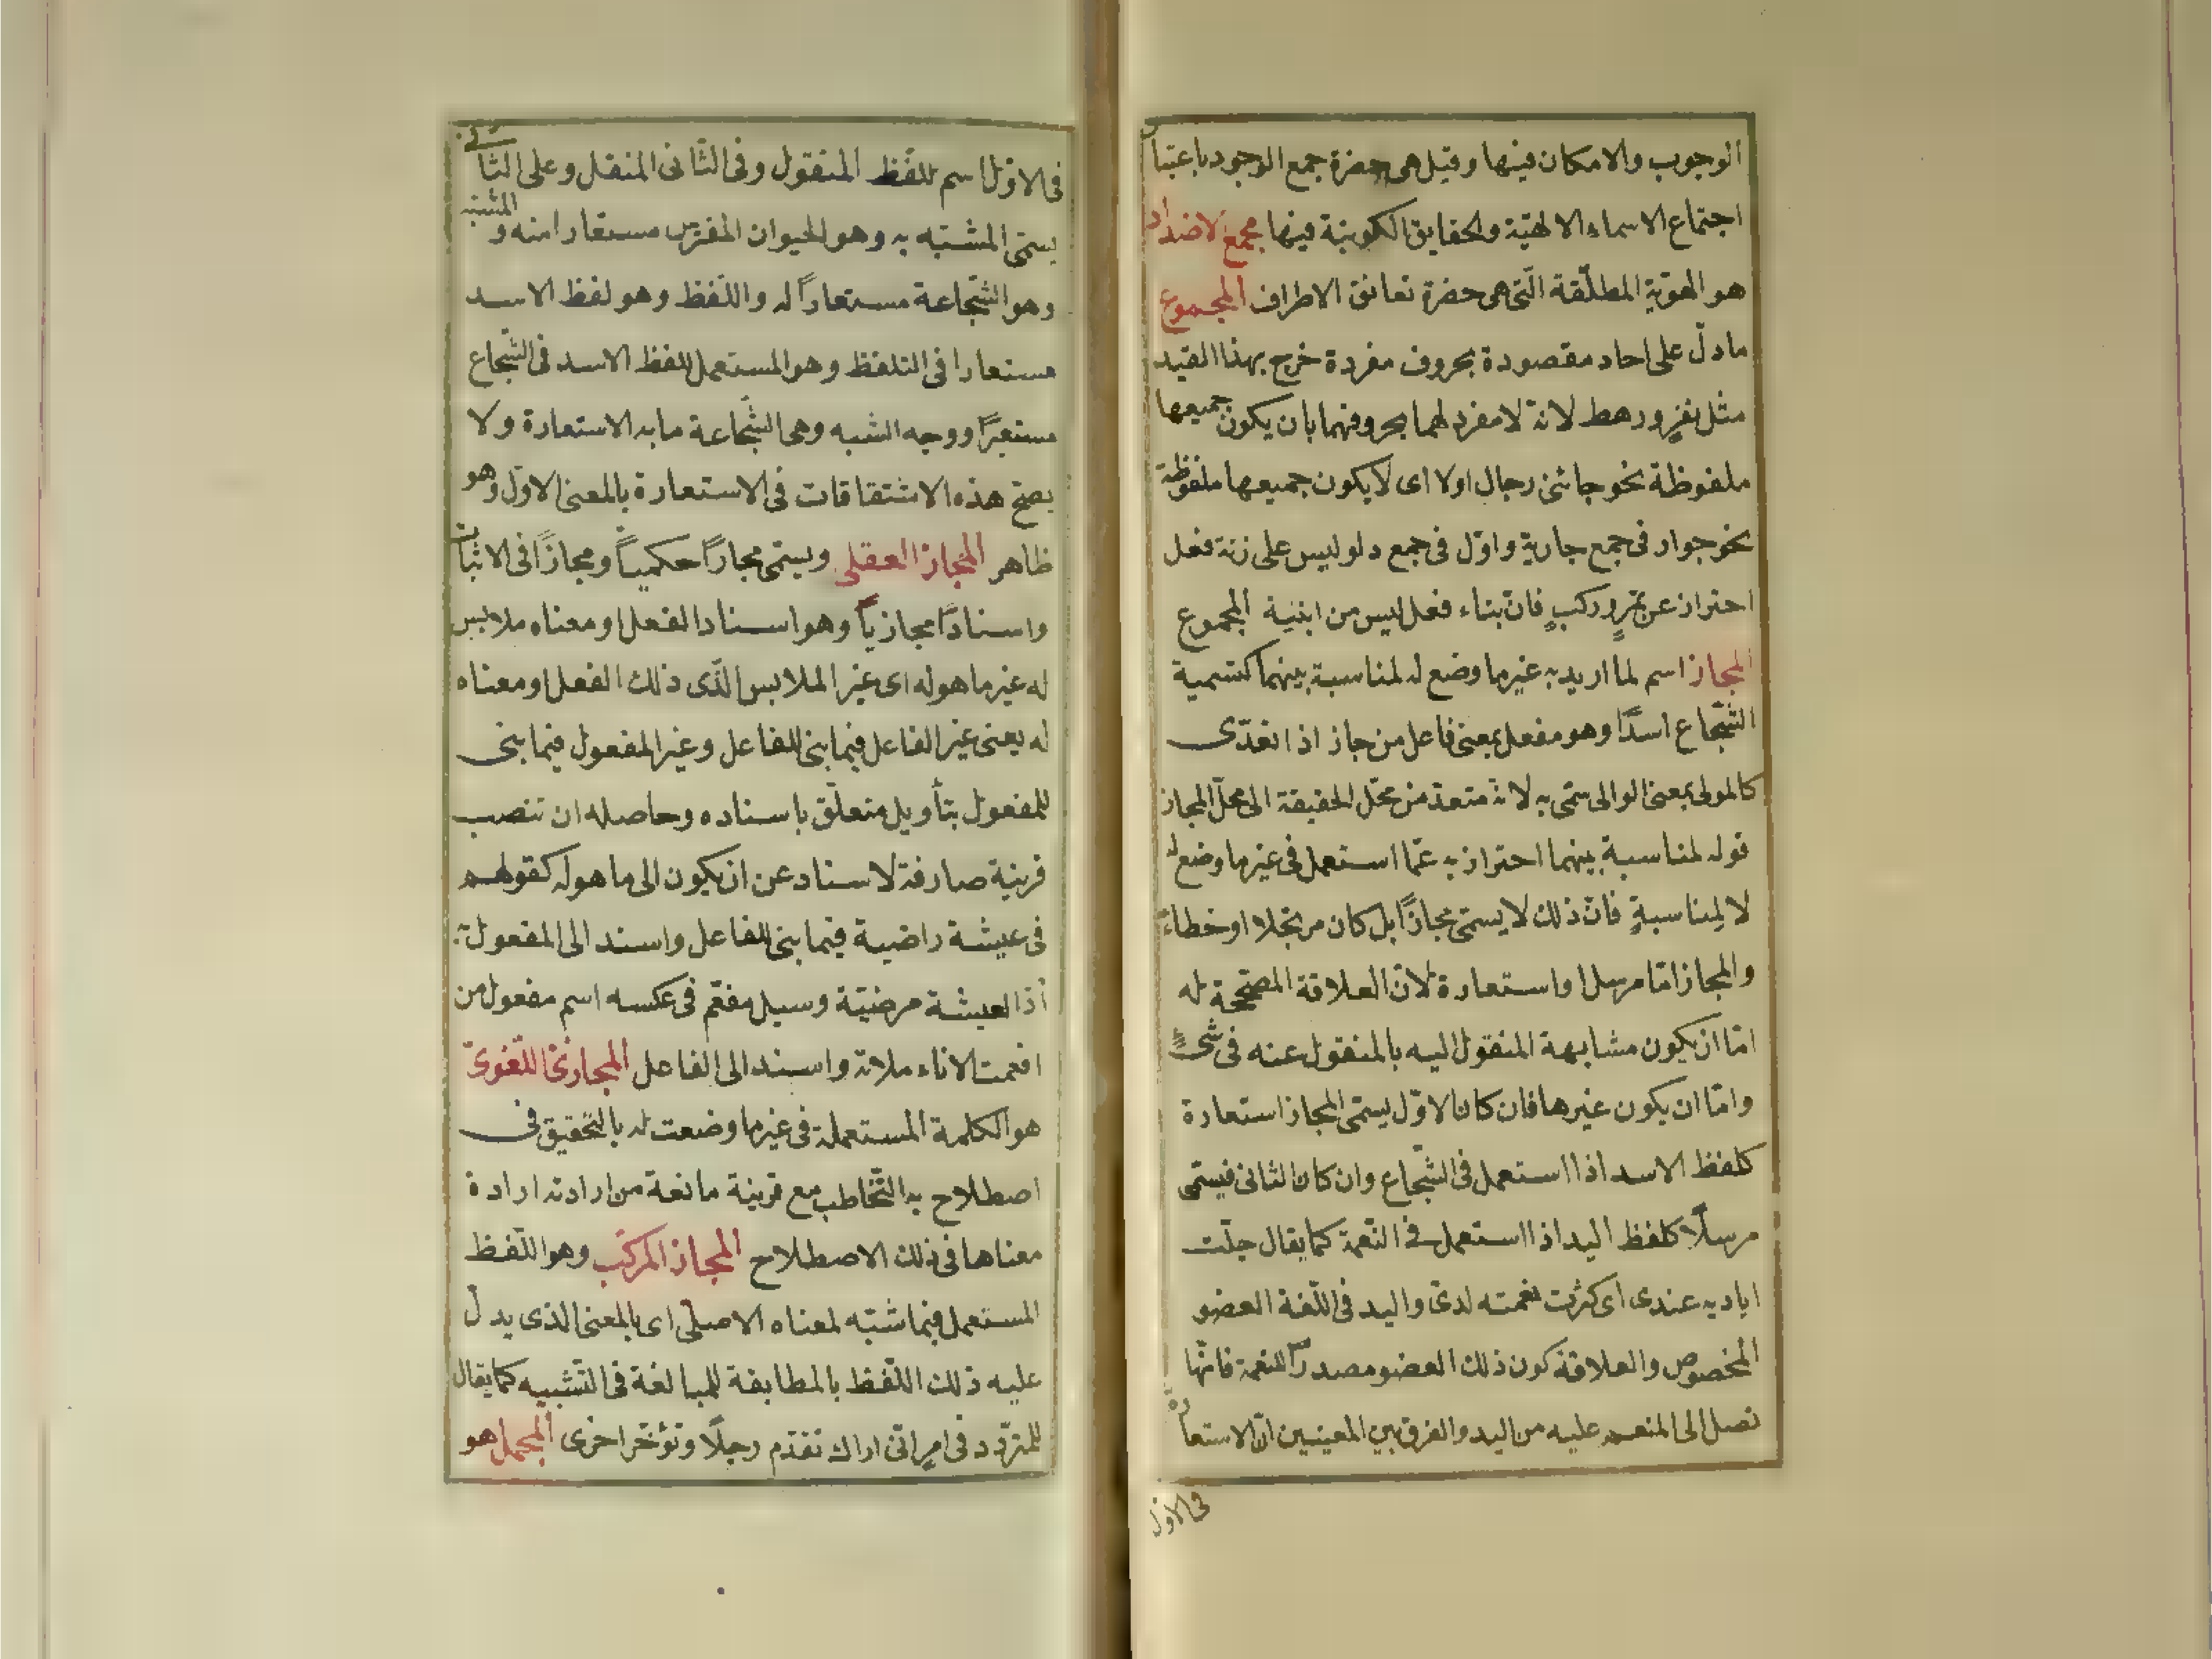 الوجوب والامكان فيها وقيل هى حضرة جمع الوجود باعتبار
اجتماع الاسماء الالهيّة والحقايق الكونية فيها مجمع الاضداد
هو الهويّة المطلّقة الّتى هى حضرة تعانق الاطراف المجموع
ما دلّ على احاد مقصودة بحروف مفردة خرج بهذا القيد
مثل نفرٍ ورهط لانّه لا مفرد لهما بحروفهما بان يكون جميعها
ملفوظة نحو جائنى رجال اولا اى لا يكون جميعها ملفوظة
نحو جوار فى جمع جارية وادل فى جمع دلو ليس على زنة فعل
احتراز عن تمرٍ وركبٍ فانّ بناء فعل ليس من ابنية المجموع
المجاز اسم لما اريد به غير ما وضع له لمناسبة بينهما كتسمية
الشّجاع اسدًا وهو مفعل بمعنى فاعل من جاز اذا تعدّى
كالمولى بمعنى الوالى سمّى به لانّه متعدّ من محّل الحقيقة الى محلّ المجاز
قوله لمناسبة بينهما احترازبه عمّا استعمل فى غير ما وضع له
لا لمناسبةٍ فانّ ذلك لا يسمّى مجازًا بل كان مرتجلا او خطاء
والمجاز امّا مرسل او استعارة لانّ العلاقة المصحّحة له
امّا ان يكون مشابهة المنقول اليه بالمنقول عنه فى شىءٍ
وامّا ان يكون غيرها فان كان الاوّل يسمّى المجاز استعارة
كلفظ الاسد اذا استعمل فى الشّجاع وان كان الثانى فيسمّى
مرسلًا كلفظ اليد اذا استعمل فى النّعمة كما يقال جلّت
اياديه عندى اى كثرت نعمته لدىّ واليد فى اللّغة العضو
المخصوص والعلاقة كون ذلك العضو مصدرًا للنعمة فانّها
تصل الى المنعم عليه من اليد والفرق بين المعنيين انّ الاستعارة
فى الاوّل
فى الاوّل اسم للّفظ المنقول وفى الثّانى المنقل وعلى الثانى
يسمّى المشبّه به وهو الحيوان المفترس مستعارا منه والمشبّه
وهو الشّجاعة مستعارًا له واللّفظ وهو لفظ الاسد
مستعارا فى التلفظ وهو المستعمل للفظ الاسد فى الشّجاع
مستعيرًا ووجه الشبه وهى الشّجاعة ما به الاستعارة ولا
يصحّ هذه الاشتقاقات فى الاستعارة بالمعنى الاوّل وهو
ظاهر المجاز العقلى ويسمّى مجازًا حكميًا ومجازًا فى الاثبات
واسنادًا مجازيًا وهو اسناد الفعل او معناه ملابس
له غير ما هو له اى غير الملابس الّذى ذلك الفعل او معناه
له يعنى غير الفاعل فيما بنى للفاعل وغير المفعول فيما بنى
للمفعول بتأويل متعلّق باسناده وحاصله ان تنصب
قرينة صارفة لاسناد عن ان يكون الى ما هو له كقولهم
فى عيشة راضية فيما بنى للفاعل واسند الى المفعول به
اذ العيشة مرضيّة وسيل مفعم فى عكسه اسم مفعول من
افعمت الاناء ملاته واسند الى الفاعل المجازىّ اللّغوىّ
هو الكلمة المستعملة فى غير ما وضعت له بالتّحقيق فى
اصطلاح به التّخاطب مع قرينة مانعة من ارادته ارادة
معناها فى ذلك الاصطلاح المجاز المركّب وهو اللّفظ
المستعمل فيما شبّه لمعناه الاصلّى اى بالمعنى الذى يدلّ
عليه ذلك اللّفظ بالمطابقة للمبالغة فى التّشبيه كما يقال
للمتردّد فى امر انّى اراك تقدّم رجلًا وتؤخّر اخرى المجمل هو